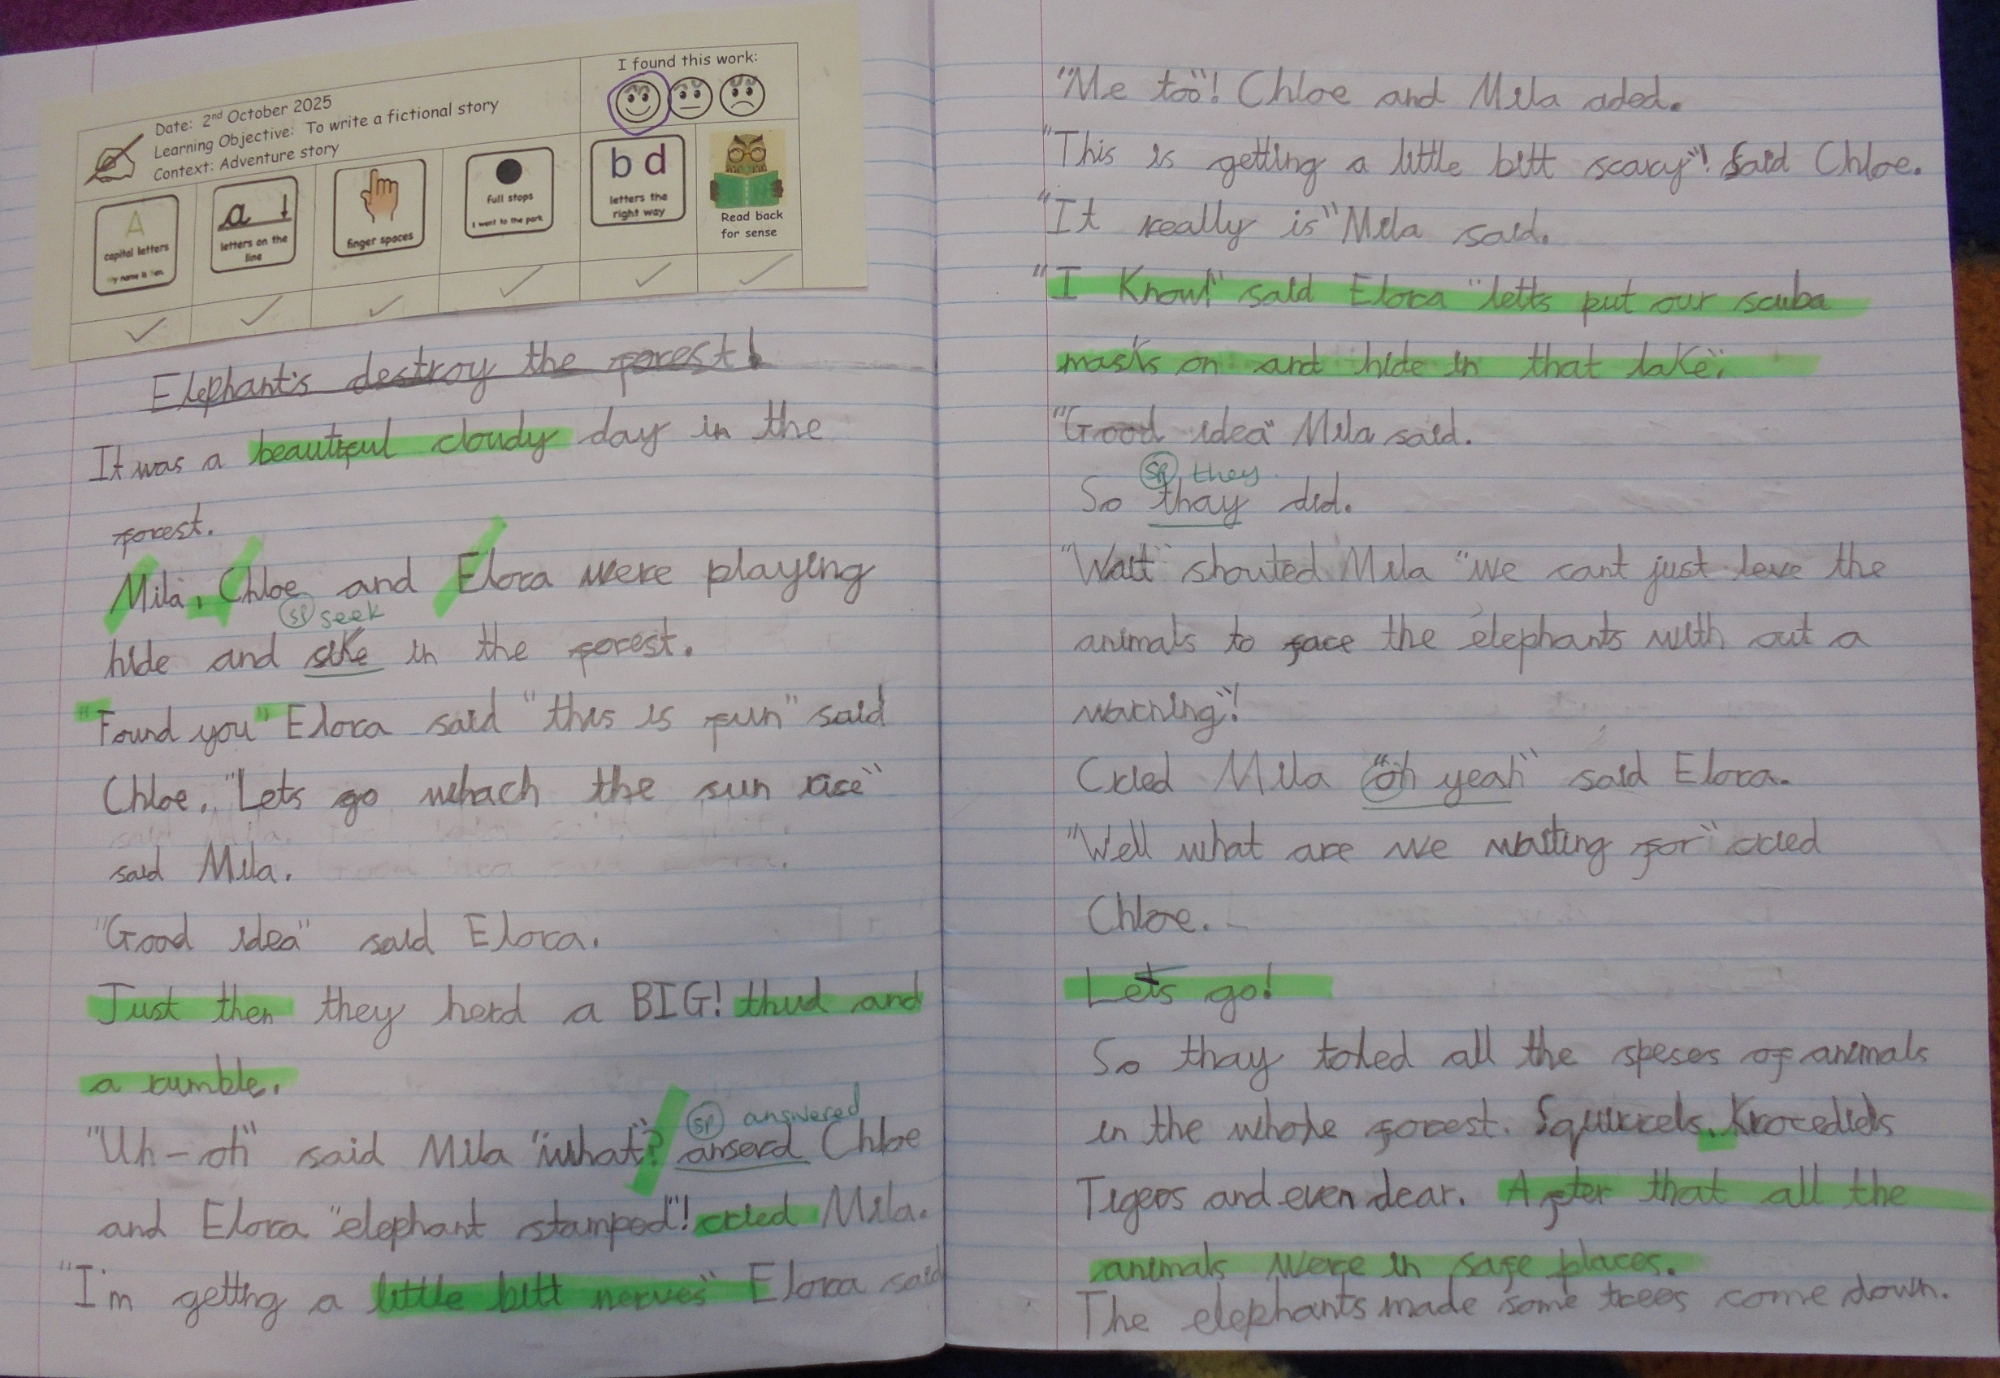 Date: 2nd October 2025
Learning Objective: To write a fictional story
Context: Adventure story
I found this work:
A
capital letters
my name is
a
letters on the
line
finger spaces
full stops
I went to the park.
b d
letters the
right way
Read back
for sense
Elephant's destroy the forest!
It was a beautiful cloudy day in the
forest.
Mila, Chloe and Elora were playing
sp seek
hide and sike in the forest.
"Found you" Elora said "this is fun" said
Chloe. "Lets go whach the sun rise"
said Mila.
"Good idea" said Elora.
Just then they herd a BIG! thud and
a rumble.
sp answered
"Uh-oh" said Mila "what"? anserd Chloe
and Elora "elephant stamped"! cried Mila.
"I'm getting a little bitt nerves" Elora said
"Me too"! Chloe and Mila aded.
"This is getting a little bitt scary"! said Chloe.
"It really is" Mila said.
"I Know!" said Elora "letts put our scuba
masks on and hide in that lake".
"Good idea" Mila said.
sp they
So thay did.
"Wait" shouted Mila "we cant just leve the
animals to face the elephants with out a
warning"!
Cried Mila "oh yeah" said Elora.
"Well what are we waiting for" cried
Chloe.
Lets go!
So thay toled all the speses of animals
in the whole forest. Squirrels, Krocediels
Tigers and even dear. After that all the
animals were in safe places.
The elephants made some trees come down.